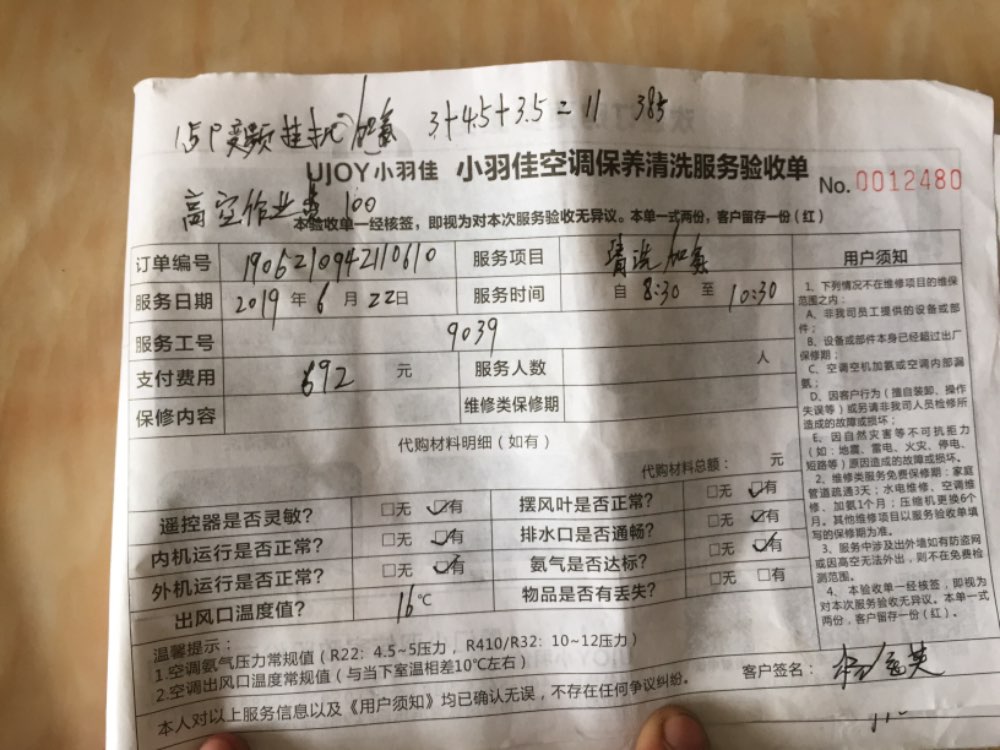 1.5P变频挂机加氨 3+4.5+3.5=11 385
UJOY小羽佳 小羽佳空调保养清洗服务验收单
No. 0012480
高空作业费 100
本验收单一经核签，即视为对本次服务验收无异议。本单一式两份，客户留存一份（红）
订单编号 1906210942110610 服务项目 清洗加氨
服务日期 2019 年 6 月 22日 服务时间 自 8:30 至 10:30
服务工号 9039
支付费用 692 元 服务人数 人
保修内容 维修类保修期
代购材料明细（如有）
代购材料总额： 元
遥控器是否灵敏？ □无 ☑有 摆风叶是否正常？ □无 ☑有
内机运行是否正常？ □无 ☑有 排水口是否通畅？ □无 ☑有
外机运行是否正常？ □无 ☑有 氨气是否达标？ □无 ☑有
出风口温度值？ 16℃ 物品是否有丢失？ □无 □有
用户须知
1、下列情况不在维修项目的维保
范围之内：
A、非我司员工提供的设备或部
件；
B、设备或部件本身已经超过出厂
保修期；
C、空调空机加氨或空调内部漏
氨；
D、因客户行为（擅自装卸、操作
失误等）或另请非我司人员检修所
造成的故障或损坏；
E、因自然灾害等不可抗拒力
（如：地震、雷电、火灾、停电、
短路等）原因造成的故障或损坏。
2、维修类服务免费保修期：家庭
管道疏通3天；水电维修、空调维
修、加氨1个月；压缩机更换6个
月。其他维修项目以服务验收单填
写的保修期为准。
3、服务中涉及出外墙如有防盗网
或因高空无法外出，则不在免费检
测范围。
4、本验收单一经核签，即视为
对本次服务验收无异议。本单一式
两份，客户留存一份（红）。
温馨提示：
1.空调氨气压力常规值（R22：4.5~5压力，R410/R32：10~12压力）
2.空调出风口温度常规值（与当下室温相差10℃左右）
本人对以上服务信息以及《用户须知》均已确认无误，不存在任何争议纠纷。
客户签名：